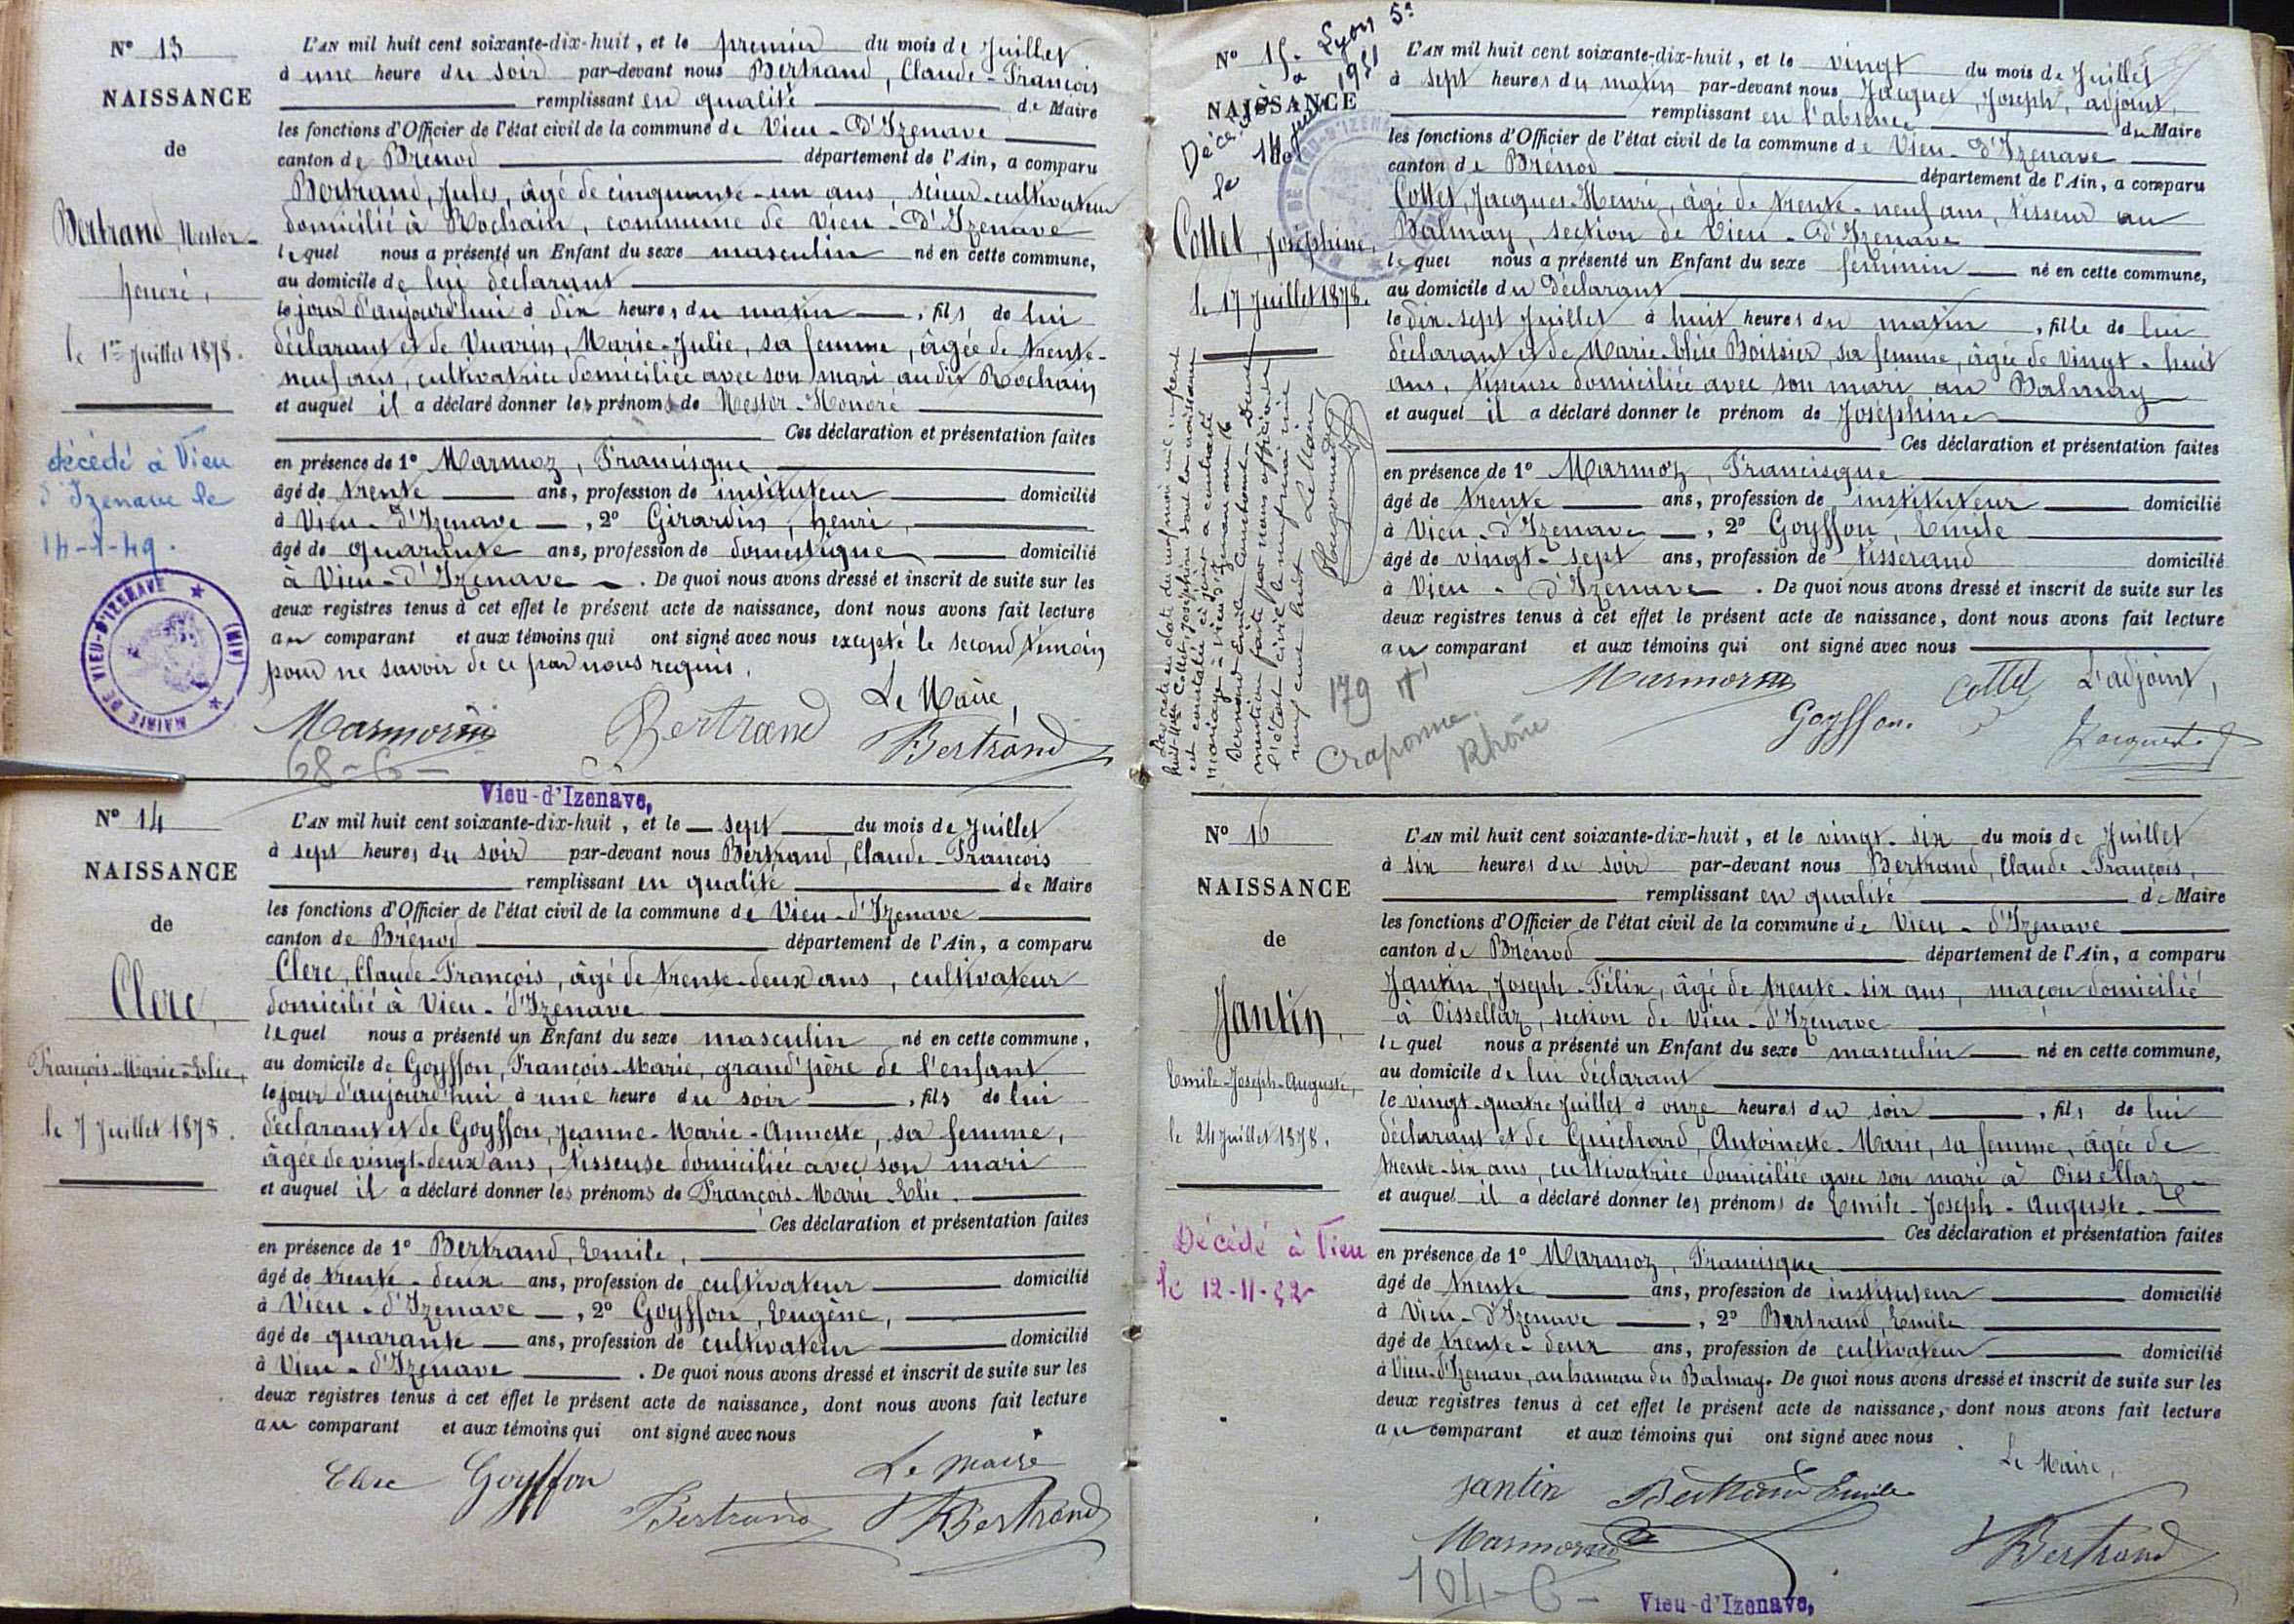 N° 13
NAISSANCE
de
Bertrand, Nestor-
honoré,
le 1er Juillet 1878.
décédé à Vieu
d'Izenave le
MAIRIE DE VIEU-D'IZENAVE (AIN)
L'AN mil huit cent soixante-dix-huit, et le premier du mois de Juillet
à une heure du soir par-devant nous Bertrand, Claude-François
remplissant en qualité de Maire
les fonctions d'Officier de l'état civil de la commune de Vieu-d'Izenave
canton de Brénod département de l'Ain, a comparu
Bertrand, Jules, âgé de cinquante-un ans, scieur-cultivateur
domicilié à Rochain, commune de Vieu-d'Izenave
lequel nous a présenté un Enfant du sexe masculin né en cette commune,
au domicile de lui déclarant
le jour d'aujourd'hui à dix heures du matin, fils de lui
déclarant et de Vuarin, Marie-Julie, sa femme, âgée de trente-
neuf ans, cultivatrice domiciliée avec son mari audit Rochain
et auquel il a déclaré donner les prénoms de Nestor-Honoré
Ces déclaration et présentation faites
en présence de 1° Marmoz, Francisque
âgé de trente ans, profession de instituteur domicilié
à Vieu-d'Izenave, 2° Girardin, henri,
âgé de quarante ans, profession de domestique domicilié
à Vieu-d'Izenave. De quoi nous avons dressé et inscrit de suite sur les
deux registres tenus à cet effet le présent acte de naissance, dont nous avons fait lecture
au comparant et aux témoins qui ont signé avec nous excepté le second témoin
pour ne savoir de ce par nous requis.
Le Maire,
Marmoz Bertrand Bertrand
68-6-
Vieu-d'Izenave,
N° 14
NAISSANCE
de
Clerc,
François-Marie-Elie,
le 7 Juillet 1878.
L'AN mil huit cent soixante-dix-huit, et le sept du mois de Juillet
à sept heures du soir par-devant nous Bertrand, Claude-François
remplissant en qualité de Maire
les fonctions d'Officier de l'état civil de la commune de Vieu-d'Izenave
canton de Brénod département de l'Ain, a comparu
Clerc, Claude-François, âgé de trente-deux ans, cultivateur
domicilié à Vieu-d'Izenave
lequel nous a présenté un Enfant du sexe masculin né en cette commune,
au domicile de Goyffon, François-Marie, grand'père de l'enfant
le jour d'aujourd'hui à une heure du soir, fils de lui
déclarant et de Goyffon, Jeanne-Marie-Annette, sa femme,
âgée de vingt-deux ans, tisseuse domiciliée avec son mari
et auquel il a déclaré donner les prénoms de François-Marie-Elie.
Ces déclaration et présentation faites
en présence de 1° Bertrand, Emile,
âgé de trente-deux ans, profession de cultivateur domicilié
à Vieu-d'Izenave, 2° Goyffon, Eugène,
âgé de quarante ans, profession de cultivateur domicilié
à Vieu-d'Izenave. De quoi nous avons dressé et inscrit de suite sur les
deux registres tenus à cet effet le présent acte de naissance, dont nous avons fait lecture
au comparant et aux témoins qui ont signé avec nous
Le Maire
Clerc Goyffon Bertrand Bertrand
N° 15
NAISSANCE
de
Décédée à Lyon 5e
le 14 juin 1951
Collet, Joséphine,
le 17 Juillet 1878.
L'AN mil huit cent soixante-dix-huit, et le vingt du mois de Juillet
à sept heures du matin par-devant nous Jacquet, Joseph, adjoint,
remplissant en l'absence du Maire
les fonctions d'Officier de l'état civil de la commune de Vieu-d'Izenave
canton de Brénod département de l'Ain, a comparu
Collet, Jacques-Henri, âgé de trente-neuf ans, tisseur au
Balmay, section de Vieu-d'Izenave
lequel nous a présenté un Enfant du sexe féminin né en cette commune,
au domicile du déclarant
le dix-sept Juillet à huit heures du matin, fille de lui
déclarant et de Marie-Elise Boissier, sa femme, âgée de vingt-huit
ans, tisseuse domiciliée avec son mari au Balmay
et auquel il a déclaré donner le prénom de Joséphine
Ces déclaration et présentation faites
en présence de 1° Marmoz, Francisque
âgé de trente ans, profession de instituteur domicilié
à Vieu-d'Izenave, 2° Goyffon, Emile
âgé de vingt-sept ans, profession de tisserand domicilié
à Vieu-d'Izenave. De quoi nous avons dressé et inscrit de suite sur les
deux registres tenus à cet effet le présent acte de naissance, dont nous avons fait lecture
au comparant et aux témoins qui ont signé avec nous
Marmoz Collet L'adjoint,
Goyffon. Jacquet J
179
Craponne.
Rhône
N° 16
NAISSANCE
de
Jantin,
Emile-Joseph-Auguste,
le 24 Juillet 1878.
Décédé à Vieu
L'AN mil huit cent soixante-dix-huit, et le vingt-six du mois de Juillet
à six heures du soir par-devant nous Bertrand, Claude-François,
remplissant en qualité de Maire
les fonctions d'Officier de l'état civil de la commune de Vieu-d'Izenave
canton de Brénod département de l'Ain, a comparu
Jantin, Joseph-Félix, âgé de trente-six ans, maçon domicilié
à Oissellaz, section de Vieu-d'Izenave
lequel nous a présenté un Enfant du sexe masculin né en cette commune,
au domicile de lui déclarant
le vingt-quatre Juillet à onze heures du soir, fils de lui
déclarant et de Guichard, Antoinette-Marie, sa femme, âgée de
trente-six ans, cultivatrice domiciliée avec son mari à Oissellaz
et auquel il a déclaré donner les prénoms de Emile-Joseph-Auguste.
Ces déclaration et présentation faites
en présence de 1° Marmoz, Francisque
âgé de trente ans, profession de instituteur domicilié
à Vieu-d'Izenave, 2° Bertrand, Emile
âgé de trente-deux ans, profession de cultivateur domicilié
à Vieu-d'Izenave, au hameau du Balmay. De quoi nous avons dressé et inscrit de suite sur les
deux registres tenus à cet effet le présent acte de naissance, dont nous avons fait lecture
au comparant et aux témoins qui ont signé avec nous
Le Maire,
Jantin Bertrand Emile
Marmoz Bertrand
104-6-
Vieu-d'Izenave,